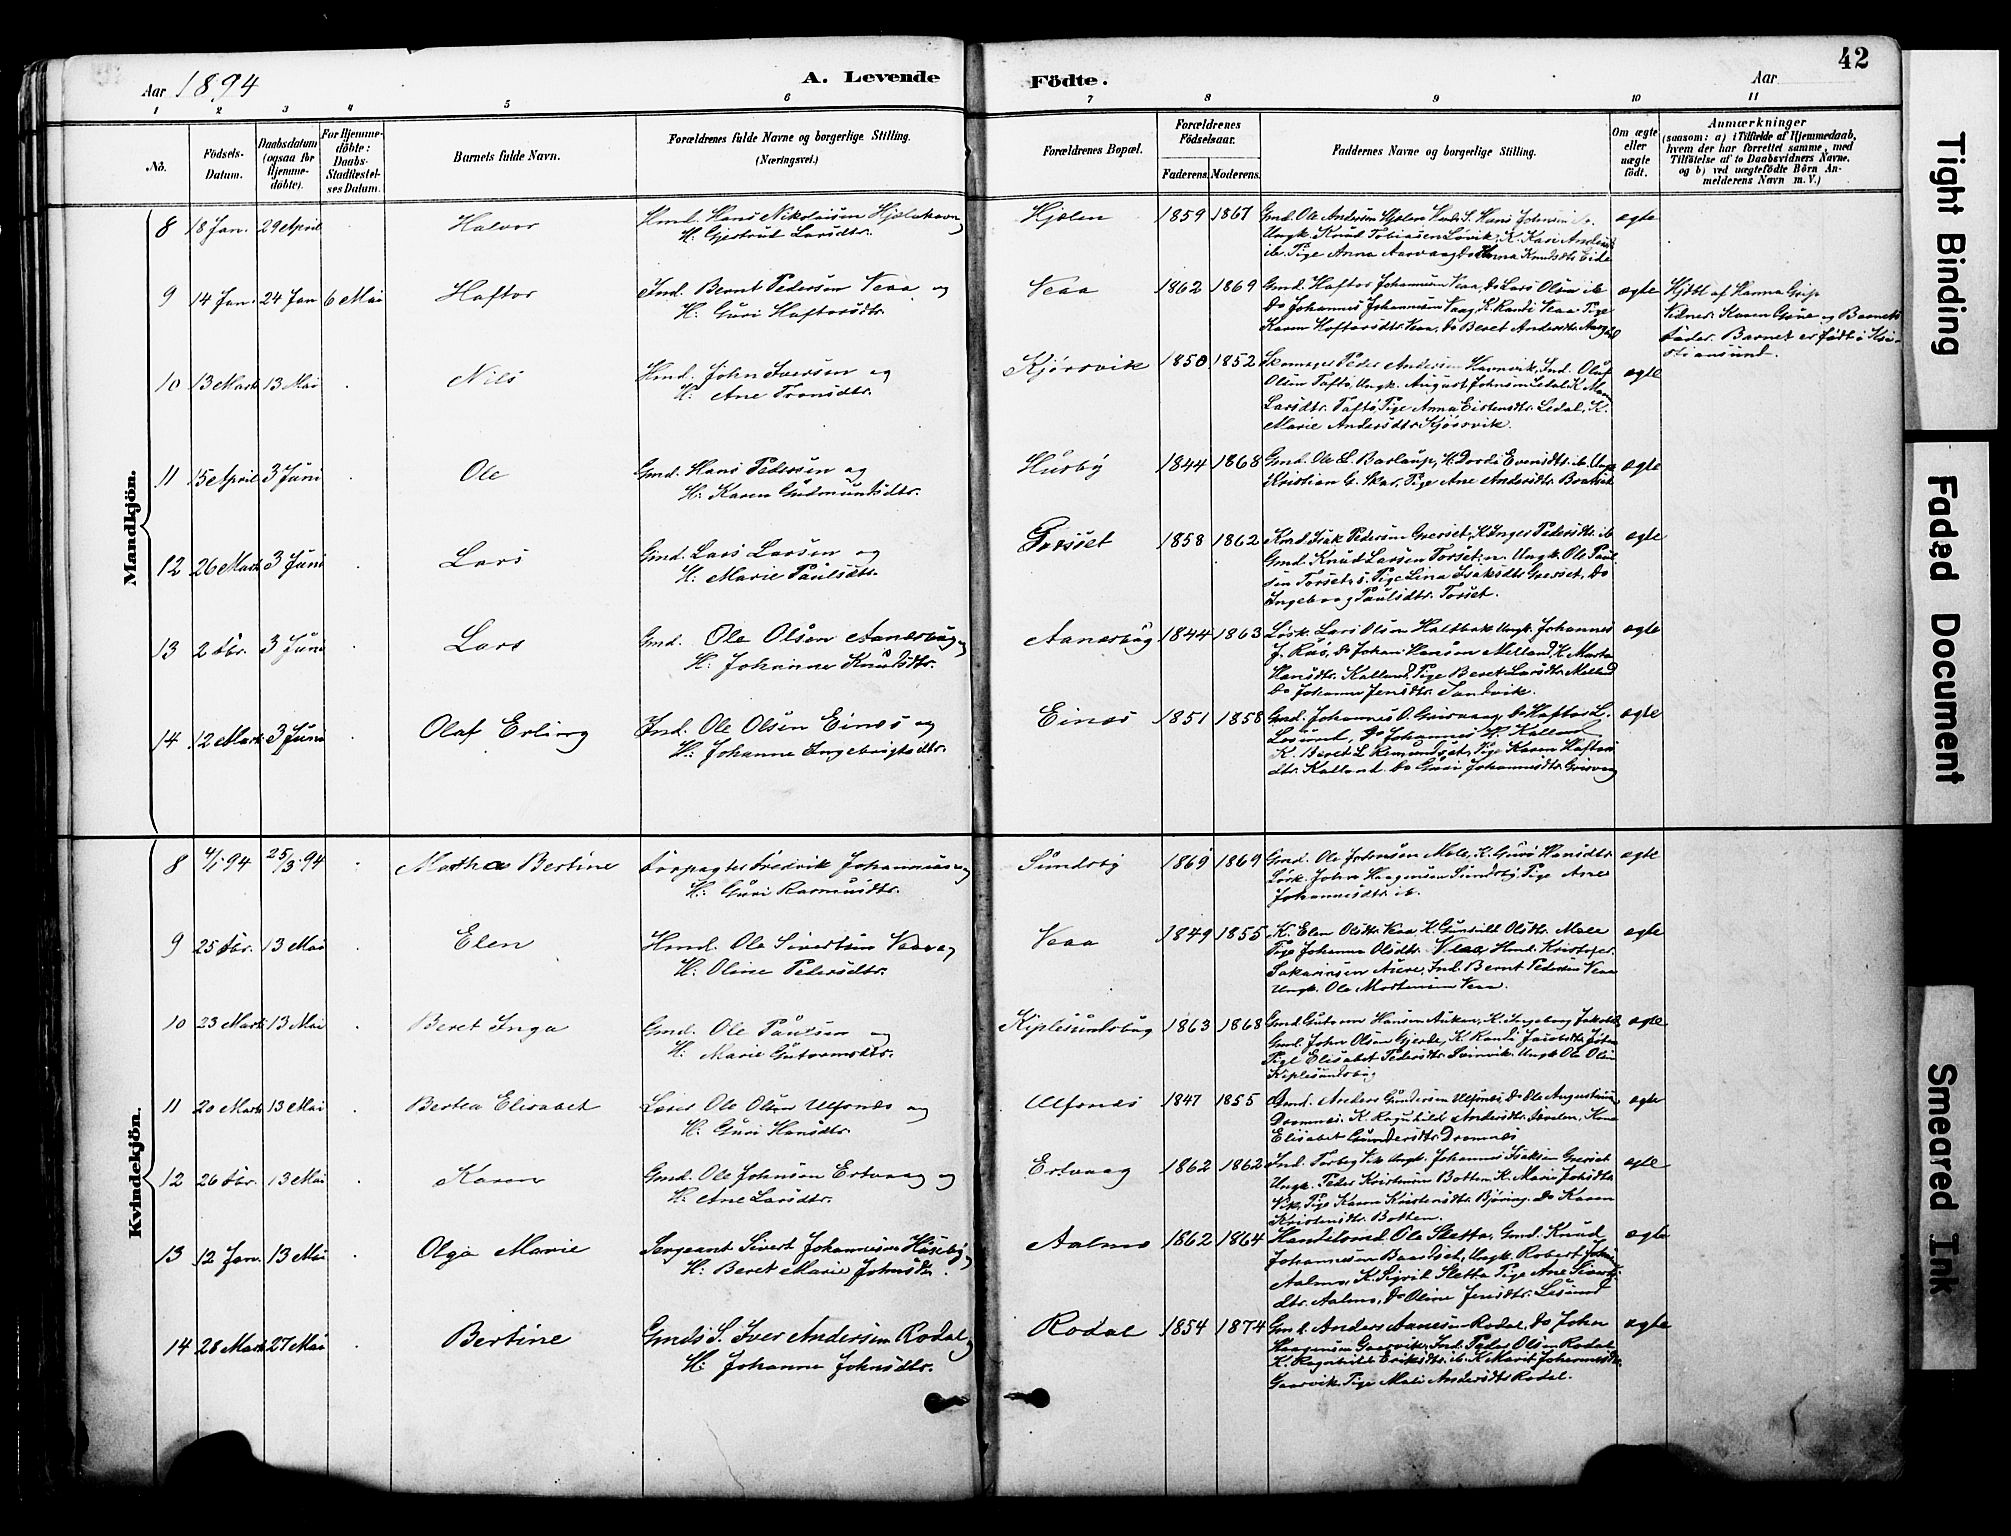 42
Aar 1894
A. Levende Födte.
Aar
1 2 3 4 5 6 7 8 9 10 11
No.
Födsels-Datum.
Daabsdatum (ogsaa for Hjemmedöbte).
For Hjemmedöbte: Daabs-Stadfæstelses Datum.
Barnets fulde Navn.
Forældrenes fulde Navne og borgerlige Stilling. (Næringsvei.)
Forældrenes Bopæl.
Forældrenes Födselsaar.
Faderens. Moderens.
Faddernes Navne og borgerlige Stilling.
Om ægte eller uægte födt.
Anmærkninger
(saasom: a) i Tilfælde af Hjemmedaab, hvem der har forrettet samme, med Tilföielse af to Daabsvidners Navne, og b) ved uægtefödte Börn Anmelderens Navn m. V.)
Mandkjön.
8 18 Jan. 29 April Halvor Hmd. Hans Nikolaisen
H: Gjertrud Larsdtr. Hjelen 1859 1867 Gmd. Ole Andersen Hjelen
Ungk. Knud Tobiasen Løvik, K. Kari
ib. Pige Anna Knudsdtr Eide ægte
9 14 Jan. 24 Jan 6 Mai Haftor Ind. Bernt Pedersen Veaa og
H: Guri Haftorsdtr. Veaa 1862 1869 Gmd. Haftor Johannesen Veaa, Do Lars Olsen ib.
Do Johannes Johannesen Vaag, K. Randi Veaa Pige
Karen Haftorsdtr. Veaa, do Beret Andersdtr. ægte
Hjdbt af Hanna Grip
Vidner: Karen og Barnets
Fader. Barnet er født i Kri-
stiansund.
10 13 Marts 13 Mai Nils Hmd. John Iversen og
H: Ane Tronsdtr. Kjørsvik 1850 1852 Skomager Peder Andersen Hamnvik, Ind. Oluf
Olsen Taftø, Ungk. August Johnsen Ledal, K.
Larsdtr. Taftø, Pige Anna Eistensdtr. Ledal, K.
Marie Andersdtr. Kjørsvik. ægte
11 15 April 3 Juni Ole Gmd. Hans Pedersen og
H: Karen Gudmundsdtr. Husby 1844 1868 Gmd. Ole L. K. Dordi Evensdtr. ib. Ungk
Kristian G. Skar, Pige Ane Andersdtr. ægte
12 26 Marts 3 Juni Lars Gmd. Lars Larsen og
H: Marie Paulsdtr. Torset 1858 1862 Isak Pedersen K. Inger Pedersdtr. ib
Gmd. Knud Larsen Torset, n. Ungk. Ole Paul-
sen Torset, s. Pige Lina Isaksdtr Do
Ingeborg Paulsdtr. Torset. ægte
13 2 Fbr. 3 Juni Lars Gmd. Ole Olsen Aanesbug og
H: Johanne Knudsdtr. Aanesbug 1844 1863 Løsk. Lars Olsen Ungk. Johannes
J. Røs, do Johan Hansen Melland, K. Marta
Hansdtr. Kalland, Pige Beret Larsdtr. Melland
Do Johanne Jensdtr. Sandvik. ægte
14 12 Marts 3 Juni Olaf Erling Ind. Ole Olsen Eines og
H: Johanne Ingebrigtsdtr. Einæs 1851 1858 Gmd. Johannes O. Grisvaag, Do Haftor L.
Lesund, Do Johannes Kalland,
K. Beret L. Remundset, Pige Karen Haftors
dtr. Kalland. Do Guri Johannesdtr. Grisvaag ægte
Kvindekjön.
8 4/1 94 25/3 94 Martha Bertine Forpagter Fredrik Johannesen og
H: Guri Rasmusdtr. Sundsby 1869 1869 Gmd. Ole Mele, K. Guro Hansdtr.
Løsk. John Haagensen Sundsby, Pige Ane
Johannesdtr. ib. ægte
9 25 Fbr. 13 Mai Elen Hmd. Ole Sivertsen Veaa og
H: Oline Pedersdtr. Veaa 1849 1855 K. Elen Olsdtr. Veaa, K. Gunhild Olsdtr. Mele
Pige Johanne Olsdtr. Veaa, Hmd. Kristofer
Sakariasen Aure, Ind. Bernt Pedersen Veaa
Ungk. Ole Mortensen Veaa. ægte
10 23 Marts 13 Mai Beret Inga Gmd. Ole Paulsen og
H: Marie Gutormsdtr. Kiplesundsbug 1863 1868 Gmd. Gutorm Hansen Auken, K. Ingeborg
Gmd. John Olsen Gjerde, K. Randi
Pige Elisabet Pedersdtr. Svinvik, Ungk Ole Olsen
Kiplesundsbug ægte
11 20 Marts 13 Mai Bertea Elisabet Løser Ole Olsen Ulfsnes og
H: Guri Hansdtr. Ulfsnes 1847 1855 Gmd. Anders Gundersen Ulfsnes, Do Ole Augustinsen
Dromnes, K. Ragnhild Andersdtr.
Elisabet Gundersdtr. Dromnes ægte
12 26 Fbr. 13 Mai Karen Gmd. Ole Johnsen Ertvaag og
H: Ane Larsdtr. Ertvaag 1862 1862 Ind. Torbeg Vik, Ungk. Johannes Isaksen
Ungk. Peder Kristensen Botten, K. Marie
Vik, Pige Karen Kristensdtr. Bjøring, do Karen
Kristensdtr. Botten. ægte
13 12 Jan. 13 Mai Olga Marie Sergeant Sivert Johannesen Huseby og
H: Beret Marie Johnsdtr. Aalmo 1862 1864 Handelsmd. Ole Sletta, Gmd. Knud
Johannesen Baardset, Ungk. Robert
Aalmo, K. Sigrid Sletta, Pige Ane
dtr. Aalmo, Do Oline Jensdtr. Lesund ægte
14 28 Marts 27 Mai Bertine Gmds S. Iver Andersen Rodal og
H: Johanna Johnsdtr. Rodal 1854 1874 Gmd. Anders Aanesen Rodal, Do John
Haagensen Gaarvik, Ind. Peder Olsen Rodal
K. Ragnhild Eriksdtr. ib. K. Marit Johannesdtr.
Gaarvik, Pige Mali Andersdtr Rodal. ægte
Tight Binding
Faded Document
Smeared Ink